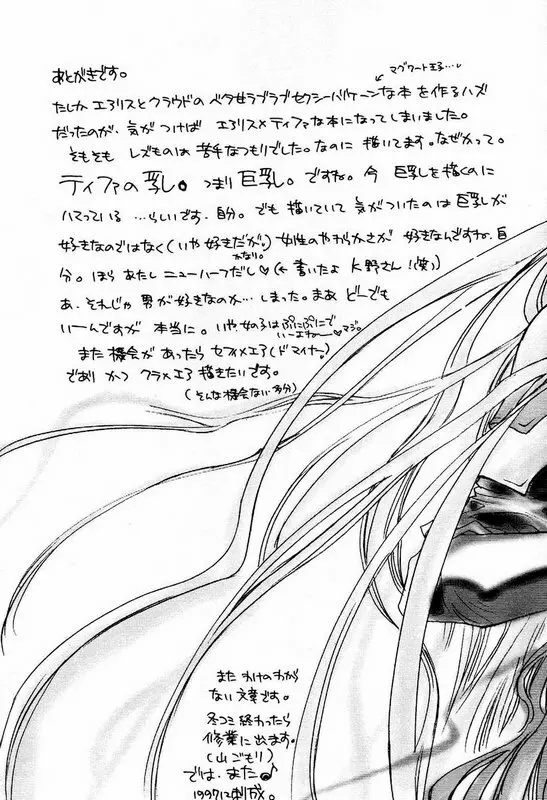 あとがきです。
マグワート王子…
たしか エアリスとクラウドの ベタ甘ラブラブセクシーバルケーンな本 を作るハズ
だったのが、気がつけば エアリス×ティファな本になってしまいました。
そもそも レズものは苦手なつもりでした。なのに 描いてます。なぜかって。
ティファの乳。つまり巨乳。ですね。今 巨乳を描くのに
ハマっている …らしいです、自分。でも 描いていて 気がついたのは 巨乳が
好きなのではなく(いや好きだが。)女性のやわらかさが 好きなんですね、自
かなり。
分。ほら あたし ニューハーフだし♡(←書いたよ 野さん!(笑)
あ、それじゃ 男が好きなのか… しまった。まあ どーでも
いーんですが 本当に。いや女の子は ぷにぷにで
いーよねー♡マジ。
また 機会が あったら セフィ×エア(ドマイナー)
であり かつ クラ×エア 描きたいです。
(そんな機会ない 多分)
また わけのわから
ない文章です。
冬コミ終わったら
修業に出ます。
(山ごもり)
では、また♪
1997